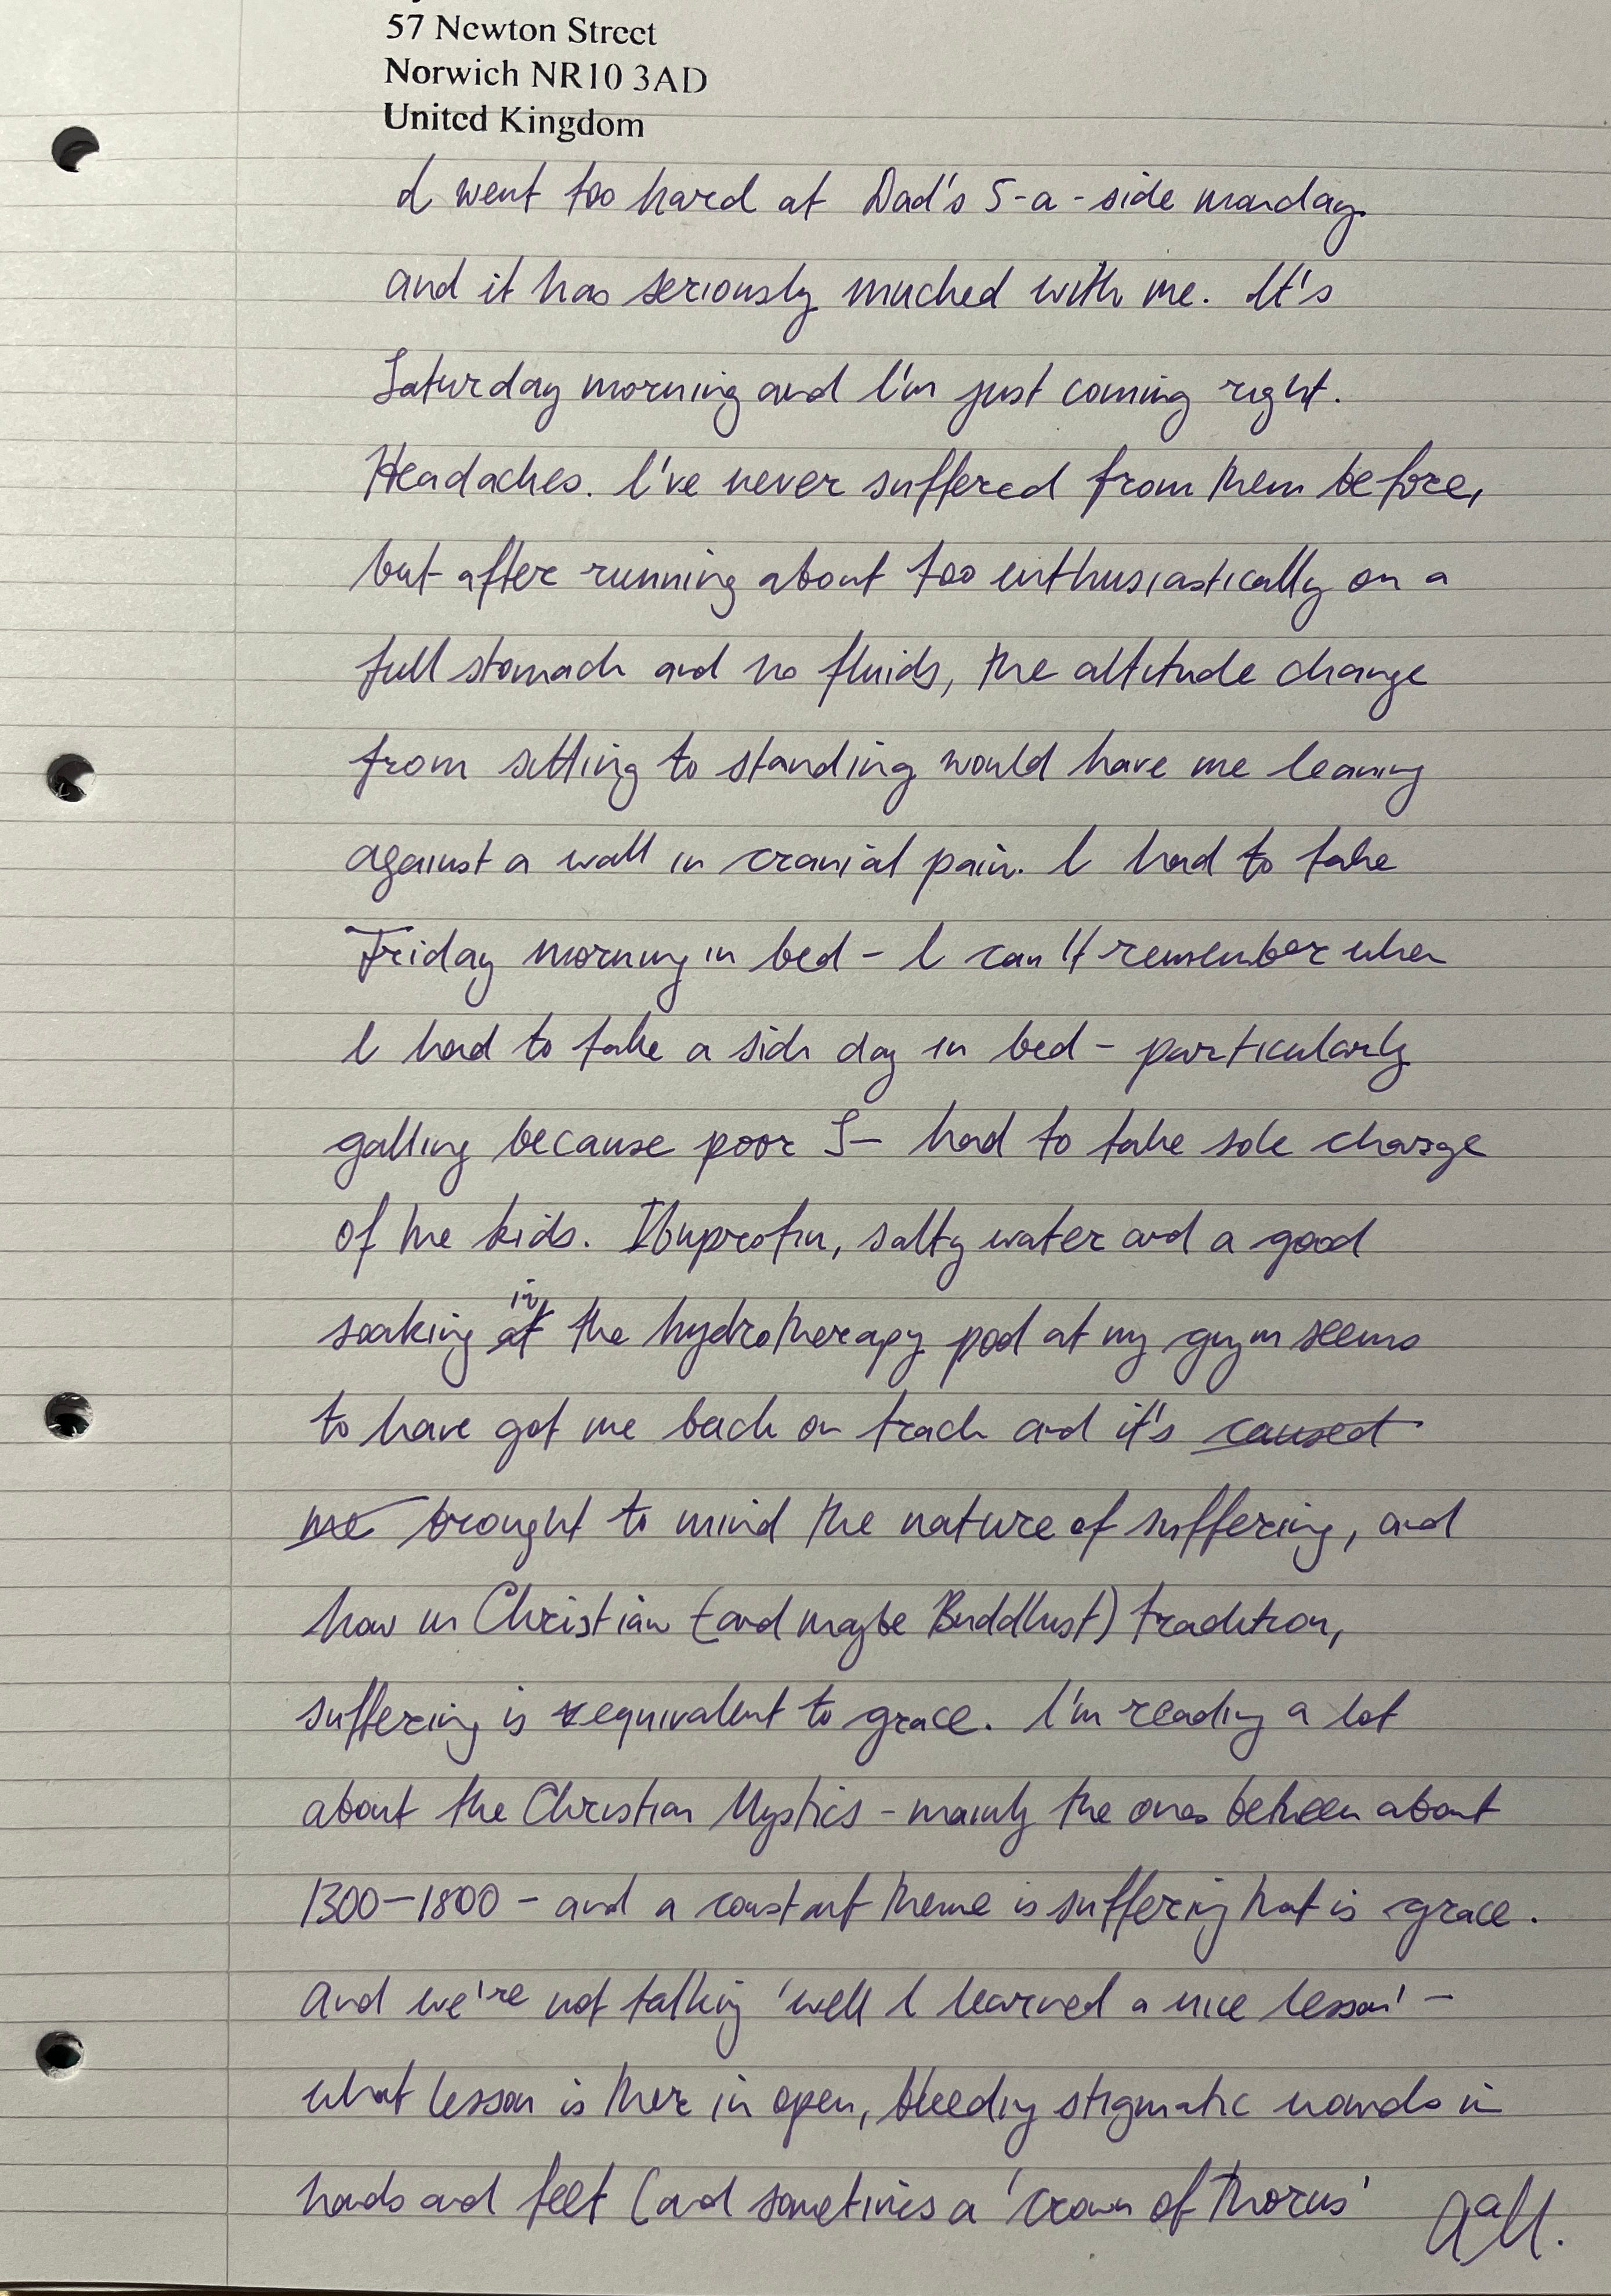 57 Newton Street
Norwich NR10 3AD
United Kingdom
I went too hard at Dad's 5-a-side monday
and it has seriously mucked with me. It's
Saturday morning and I'm just coming right.
Headaches. I've never suffered from them before,
but after running about too enthusiastically on a
full stomach and no fluids, the altitude change
from sitting to standing would have me leaning
against a wall in cranial pain. I had to take
Friday morning in bed - I can't remember when
I had to take a sick day in bed - particularly
galling because poor S— had to take sole charge
of the kids. Ibuprofin, salty water and a good
soaking at in the hydrotherapy pod at my gym seems
to have got me back on track and it's caused
me brought to mind the nature of suffering, and
how in Christian (and maybe Buddhist) tradition,
suffering is equivalent to grace. I'm reading a lot
about the Christian Mystics - mainly the ones between about
1300-1800 - and a constant theme is suffering that is grace.
And we're not talking 'well I learned a nice lesson' -
what lesson is ther in open, bleeding stigmatic wounds in
hands and feet (and sometimes a 'crown of thorns'